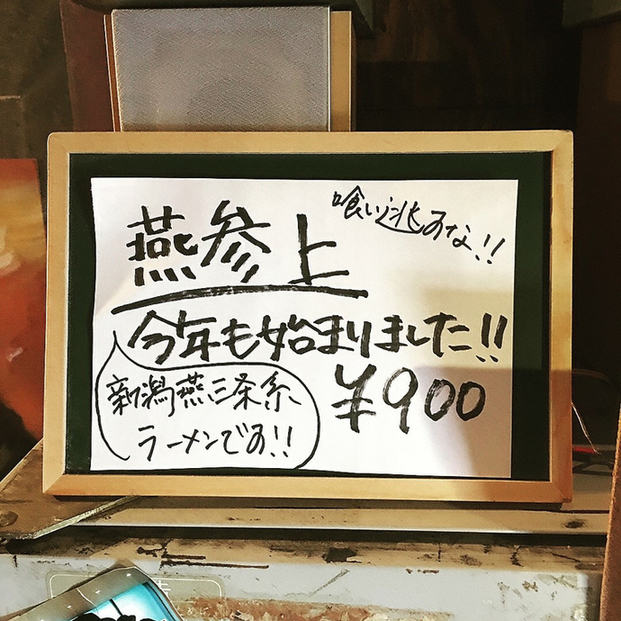 燕参上
喰い逃すな!!
今年も始まりました!!
新潟燕三条系
ラーメンです!!
¥900